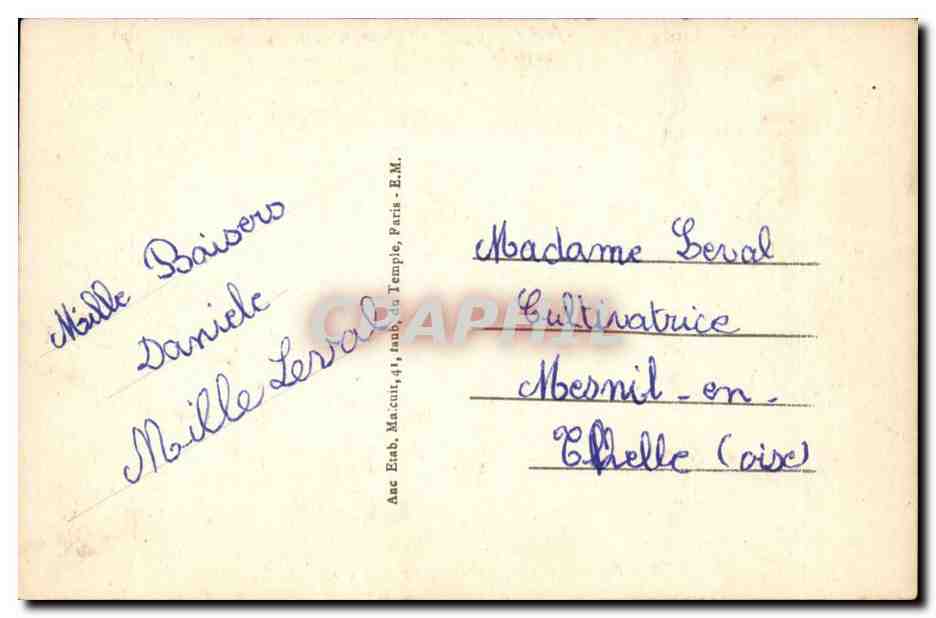 Mille Baisers
Daniele
Mille Leval
Anc Etab. Malcuit, 41, faub. du Temple, Paris - E.M.
CPAPHIL
Madame Leval
Cultivatrice
Mesnil-en-
Thelle (oise)